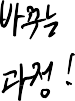 바꾸는
과정!